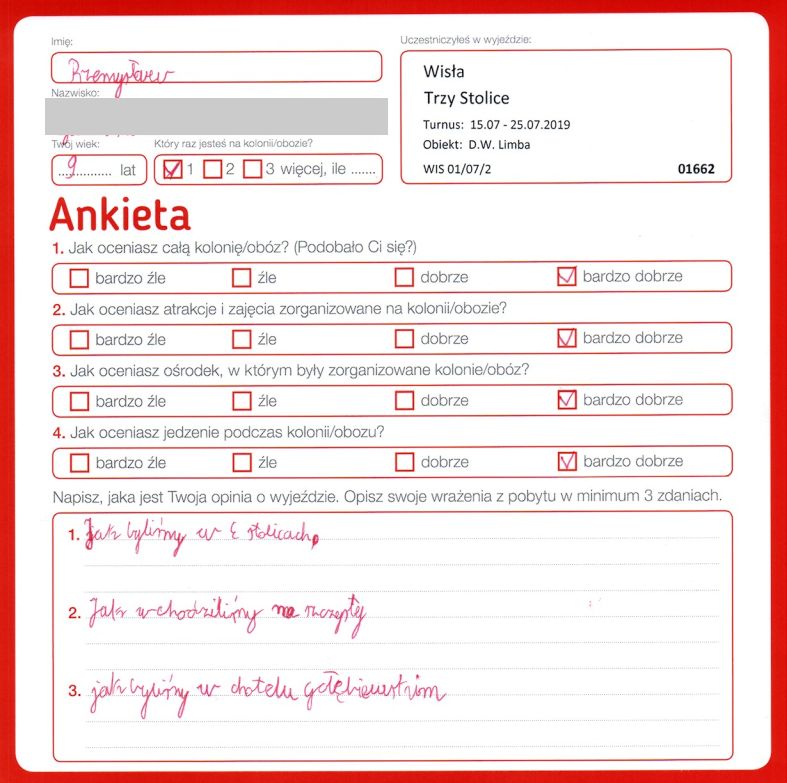 Imię:
Uczestniczyłeś w wyjeździe:
Przemysław
Wisła
Trzy Stolice
Nazwisko:
Turnus: 15.07 - 25.07.2019
Obiekt: D.W. Limba
Twój wiek: Który raz jesteś na kolonii/obozie?
9 lat 1 2 3 więcej, ile .......
WIS 01/07/2 01662
Ankieta
1. Jak oceniasz całą kolonię/obóz? (Podobało Ci się?)
bardzo źle źle dobrze bardzo dobrze
2. Jak oceniasz atrakcje i zajęcia zorganizowane na kolonii/obozie?
bardzo źle źle dobrze bardzo dobrze
3. Jak oceniasz ośrodek, w którym były zorganizowane kolonie/obóz?
bardzo źle źle dobrze bardzo dobrze
4. Jak oceniasz jedzenie podczas kolonii/obozu?
bardzo źle źle dobrze bardzo dobrze
Napisz, jaka jest Twoja opinia o wyjeździe. Opisz swoje wrażenia z pobytu w minimum 3 zdaniach.
1. jak byliśmy w stolicach
2. Jak wchodziliśmy na szczepty
3. jak byliśmy w chotelu gołębiewskim